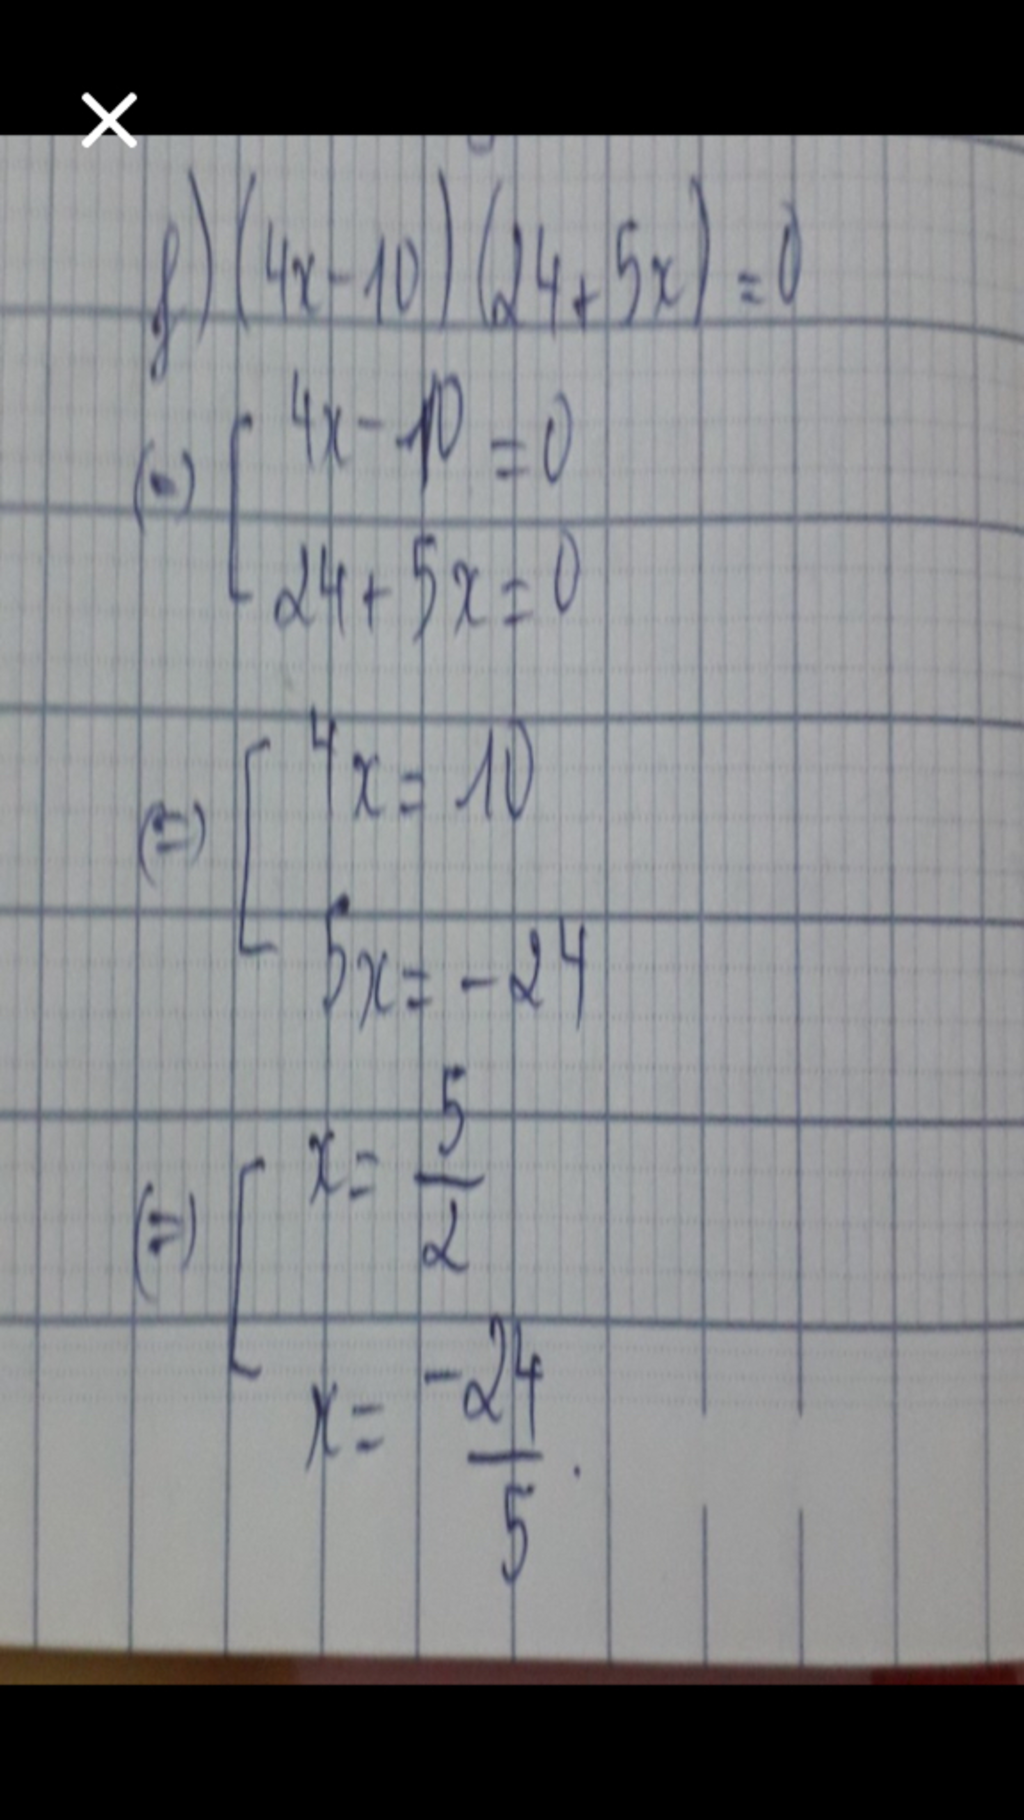 f) (4x-10)(24+5x)=0
(=) [ 4x-10=0
24+5x=0
(=) [ 4x=10
5x=-24
(=) [ x= 5/2
x= -24/5 .